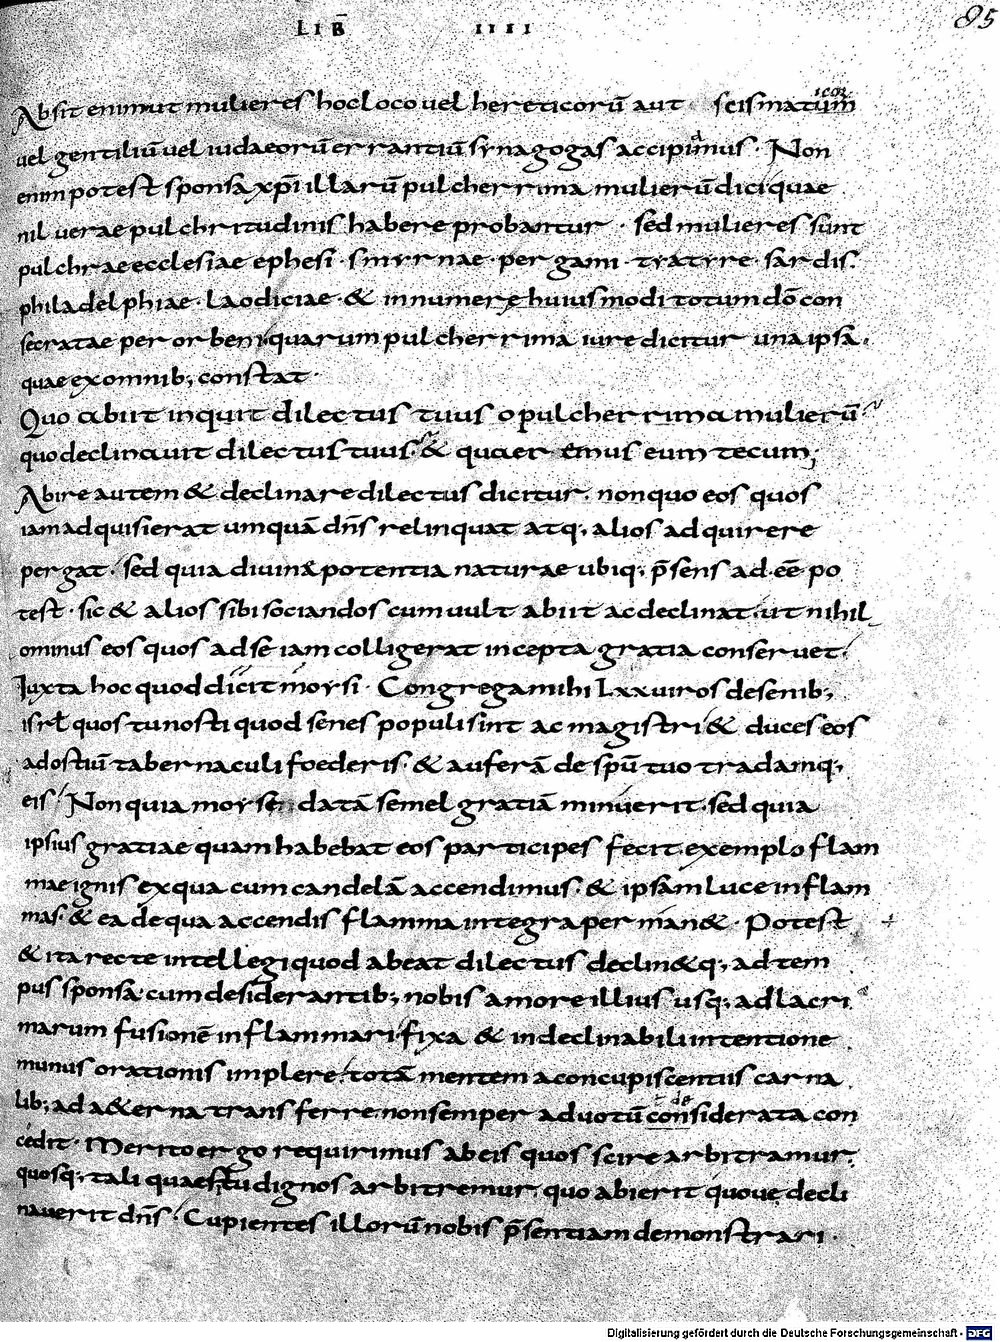 LIB̄ IIII
85
Absit enim ut mulieres hoc loco uel hereticorū aut scismaticorum
uel gentiliū uel iudaeorū errantiū synagogas accipiamus · Non
enim potest sponsa xp̄i illarū pulcherrima mulierū dici quae
nil uerae pulchritudinis habere probantur · sed mulieres sunt
pulchrae ecclesiae ephesi · smyrnae · pergami · tyatyre · sardis ·
philadelphiae · laodiciae · & innumere huius modi totum dō con
secratae per orbem quarum pulcherrima iure dicitur una ipsa ·
quae ex omnib; constat ·
Quo abiit inquit dilectus tuus o pulcherrima mulierū
quo declinauit dilectus tuus · & quaeremus eum tecum;
Abire autem & declinare dilectus dicitur · non quo eos quos
iam adquisierat umquā dn̄s relinquat atq; alios adquirere
pergat · sed quia diuina potentia naturae ubiq; p̄sens adeē po
test · sic & alios sibi sociandos cum uult abiit ac declinat · ut nihil
ominus eos quos ad se iam colligerat incepta gratia conseruet ·
Iuxta hoc quod dicit moysi · Congrega mihi Lxx uiros de senib;
isrł quos tu nosti quod senes populi sint ac magistri & duces eos
ad ostiū tabernaculi foederis · & auferā de spū tuo tradamq;
eis / Non quia moysen datā semel gratiā minuerit · sed quia
ipsius gratiae quam habebat eos participes fecit · exemplo flam
mae ignis ex qua cum candelā accendimus · & ipsam luce inflam
mas · & ea de qua accendis flamma integra perman& · Potest
& ita recte intellegi quod abeat dilectus declin&q; ad tem
pus sponsa · cum desiderantib; nobis amore illius usq; ad lacri
marum fusionē inflammari · fixa & indeclinabili intentione
munus orationis implere · totā mentem a concupiscentiis carna
lib; ad a&erna transferre non semper ad uotū considerata con
cedit · Merito ergo requirimus ab eis quos scire arbitramur ·
quosq; tali quaestu dignos arbitremur quo abierit quoue decli
nauerit dn̄s · Cupientes illorū nobis p̄sentiam demonstrari ·
Digitalisierung gefördert durch die Deutsche Forschungsgemeinschaft - DFG